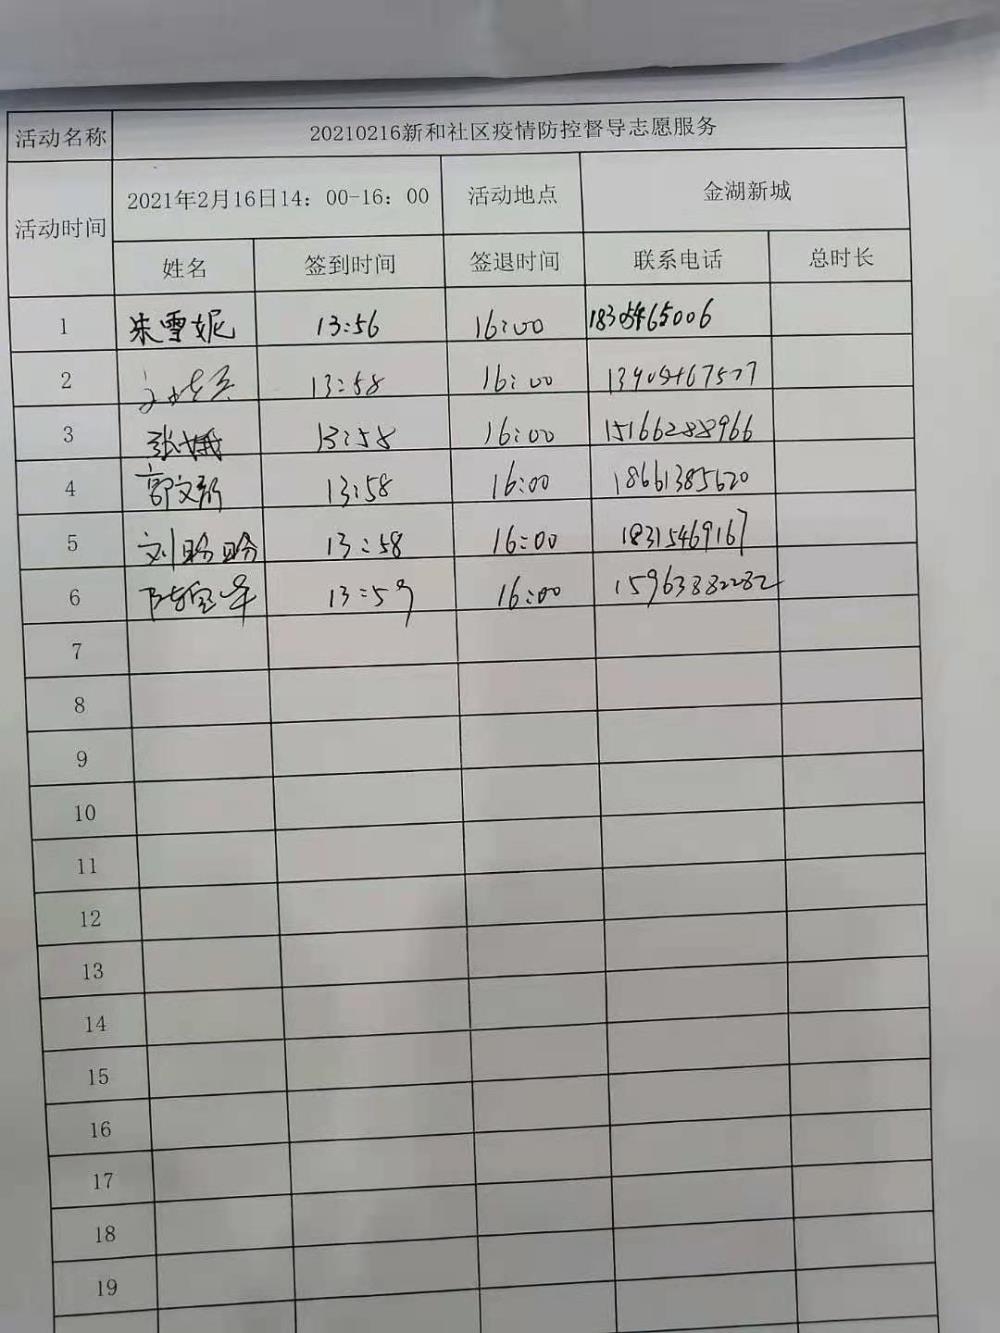 活动名称 20210216新和社区疫情防控督导志愿服务
活动时间 2021年2月16日14：00-16：00 活动地点 金湖新城
姓名 签到时间 签退时间 联系电话 总时长
1 朱雪妮 13:56 16:00 18305465006
2 13:58 16:00
3 张娥 13:58 16:00 15166288966
4 郭文新 13:58 16:00 18661385620
5 刘盼盼 13:58 16:00 18315469167
6 陈宝峰 13:59 16:00 15963882282
7
8
9
10
11
12
13
14
15
16
17
18
19